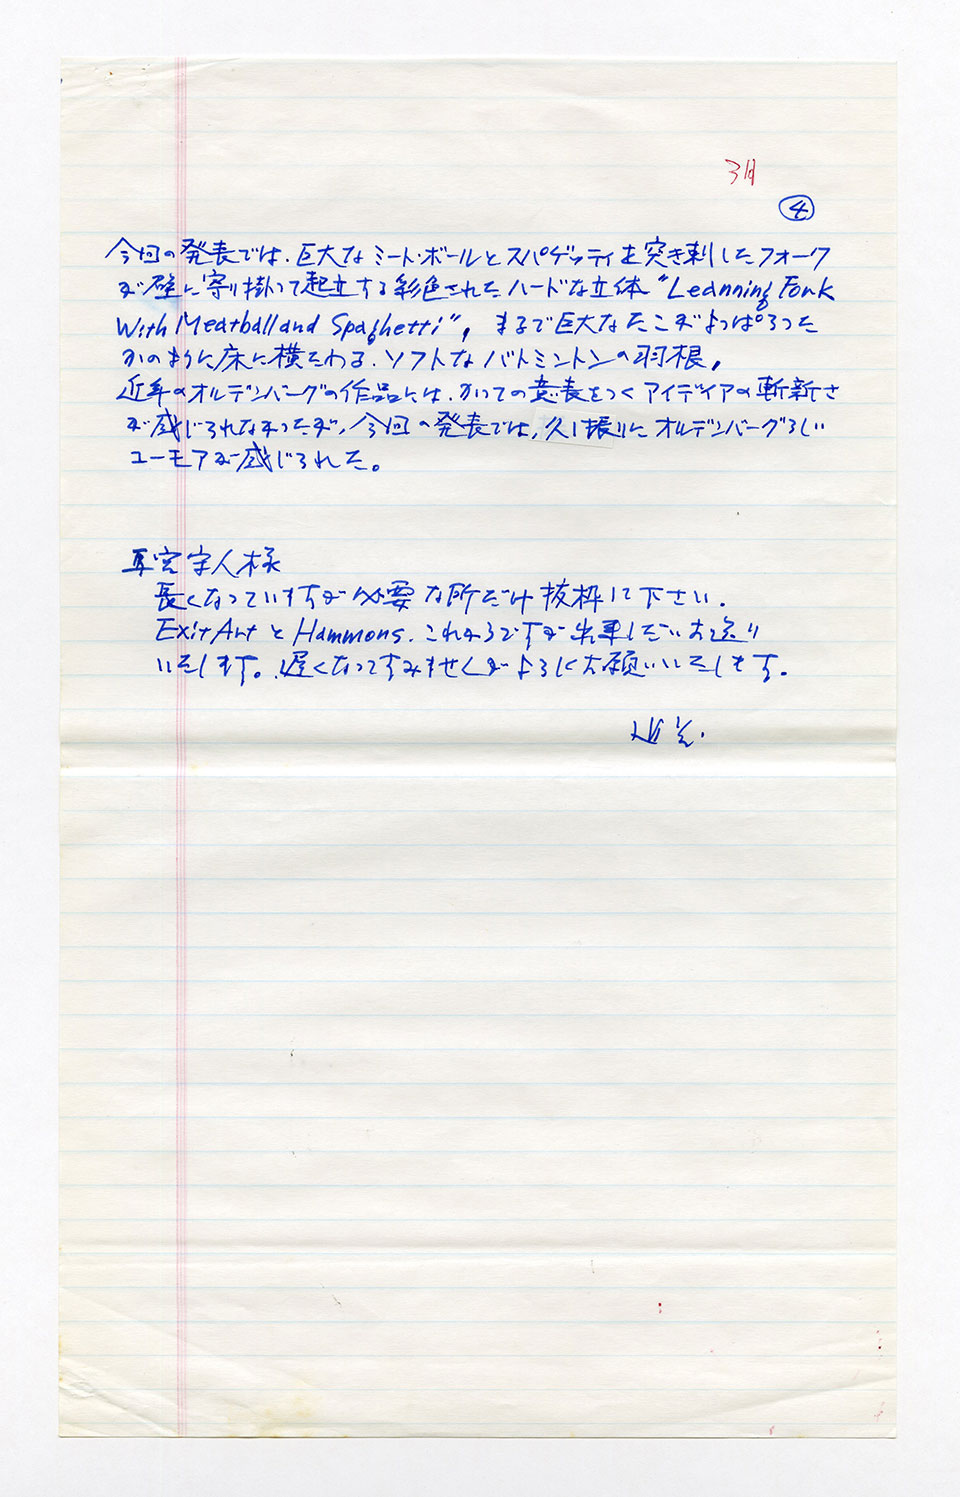 3月
④
今回の発表では、巨大なミート・ボールとスパゲッティを突き刺したフォーク
が壁に寄り掛って起立する彩色されたハードな立体 "Leanning Fork
With Meatball and Spaghetti"、まるで巨大なたこがよっぱらった
かのように床に横たわる、ソフトなバトミントンの羽根。
近年のオルデンバーグの作品には、かつての意表をつくアイディアの斬新さ
が感じられなかったが、今回の発表では、久し振りにオルデンバーグらしい
ユーモアが感じられた。
宇人様
長くなっていますが必要な所だけ抜粋して下さい。
Exit ArtとHammons、これからですが出来しだいお送り
いたします。遅くなってすみませんがよろしくお願いいたします。